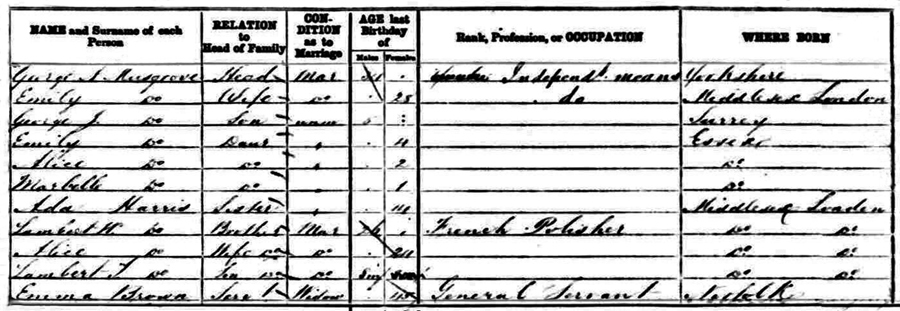 NAME and Surname of each Person RELATION to Head of Family CON- DITION as to Marriage AGE last Birthday of Males Females Rank, Profession, or OCCUPATION WHERE BORN
George A. Musgrove Head Mar Independt. means Yorkshire
Emily Do Wife Do 28 do Middlesex London
George J. Do Son unm 5 Surrey
Emily Do Daur 4 Essex
Alice Do Do 2 Do
Marbelle Do Do 1 Do
Ada Harris Sister 14 Middlesex London
Lambert H. Do Brother Mar French Polisher Do Do
Alice Do Wife Do Do 24 Do Do
Lambert Do Son Do Do Do Do
Emma Brown Servt Widow General Servant Norfolk